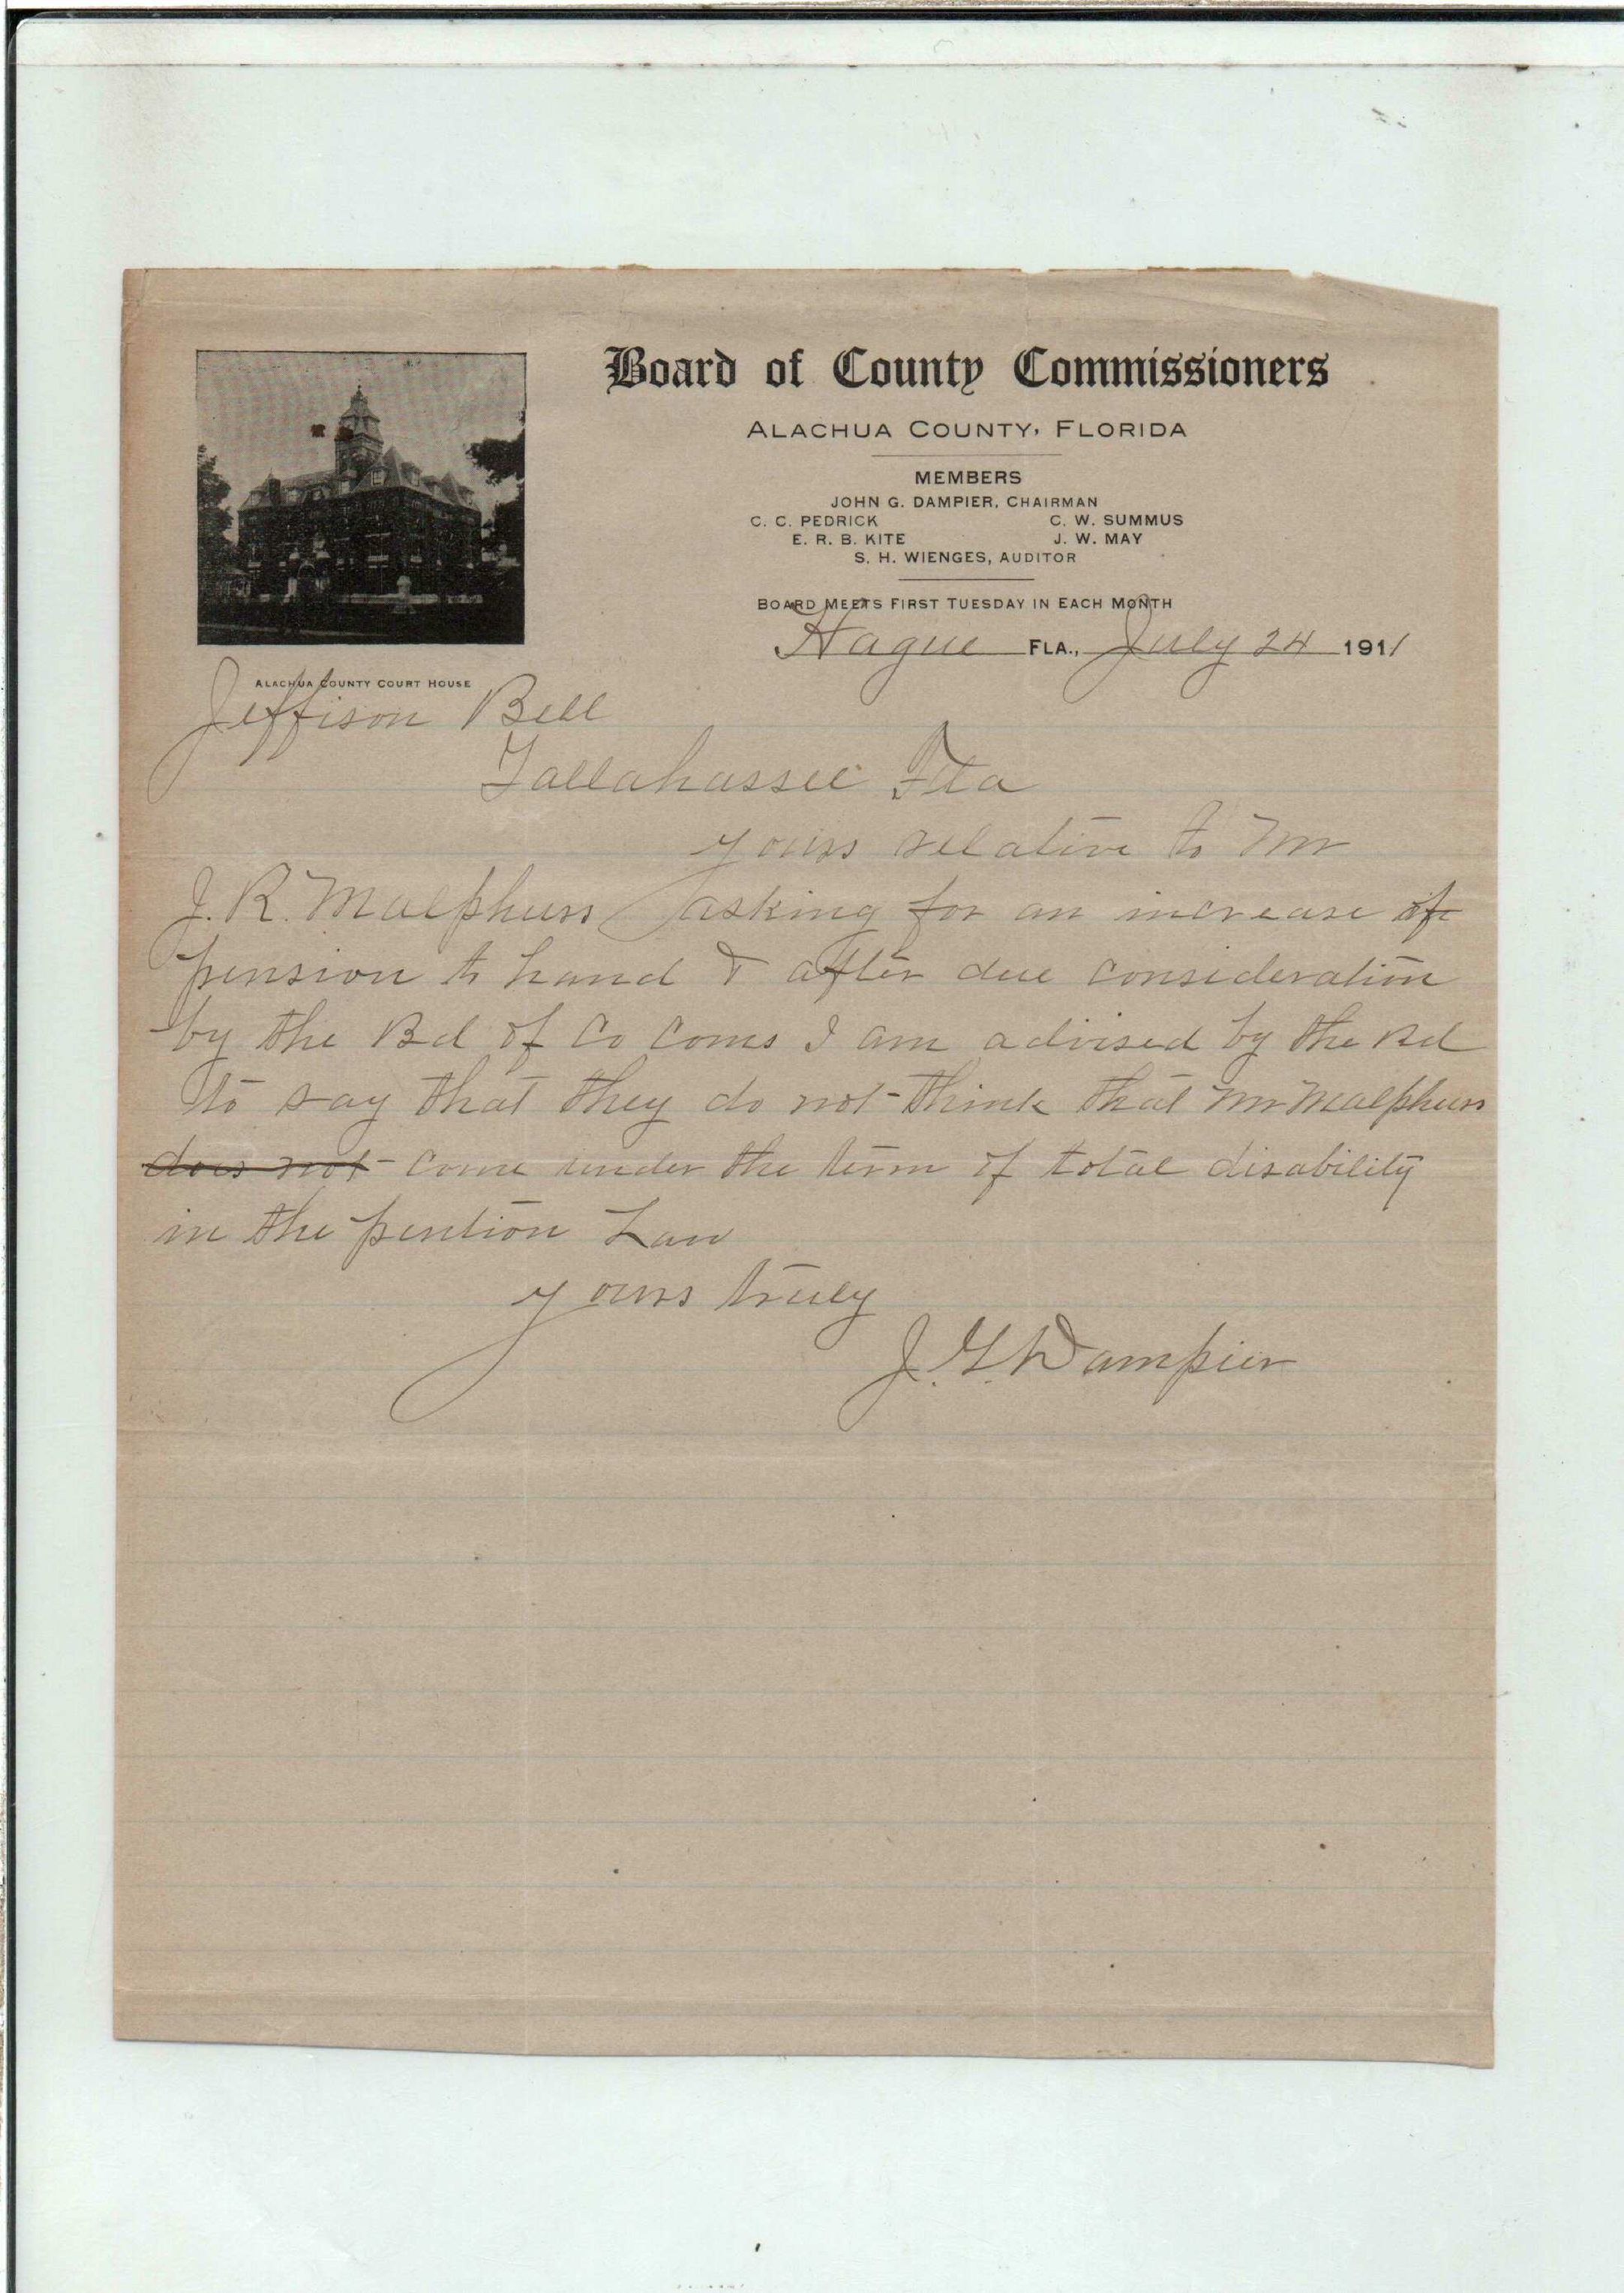 Board of County Commissioners
ALACHUA COUNTY, FLORIDA
MEMBERS
JOHN G. DAMPIER, CHAIRMAN
C. C. PEDRICK C. W. SUMMUS
E. R. B. KITE J. W. MAY
S. H. WIENGES, AUDITOR
BOARD MEETS FIRST TUESDAY IN EACH MONTH
Hague FLA., July 24 1911
ALACHUA COUNTY COURT HOUSE
Jeffison Bell
Tallahassee Fla
yours relative to Mr
J. R. Malphurs asking for an increase of
pension to hand & after due consideration
by the Bd of Co Coms I am advised by the Bd
to say that they do not think that Mr Malphurs
does not come under the term of total disability
in the pention Law
yours truly
J. G. Dampier